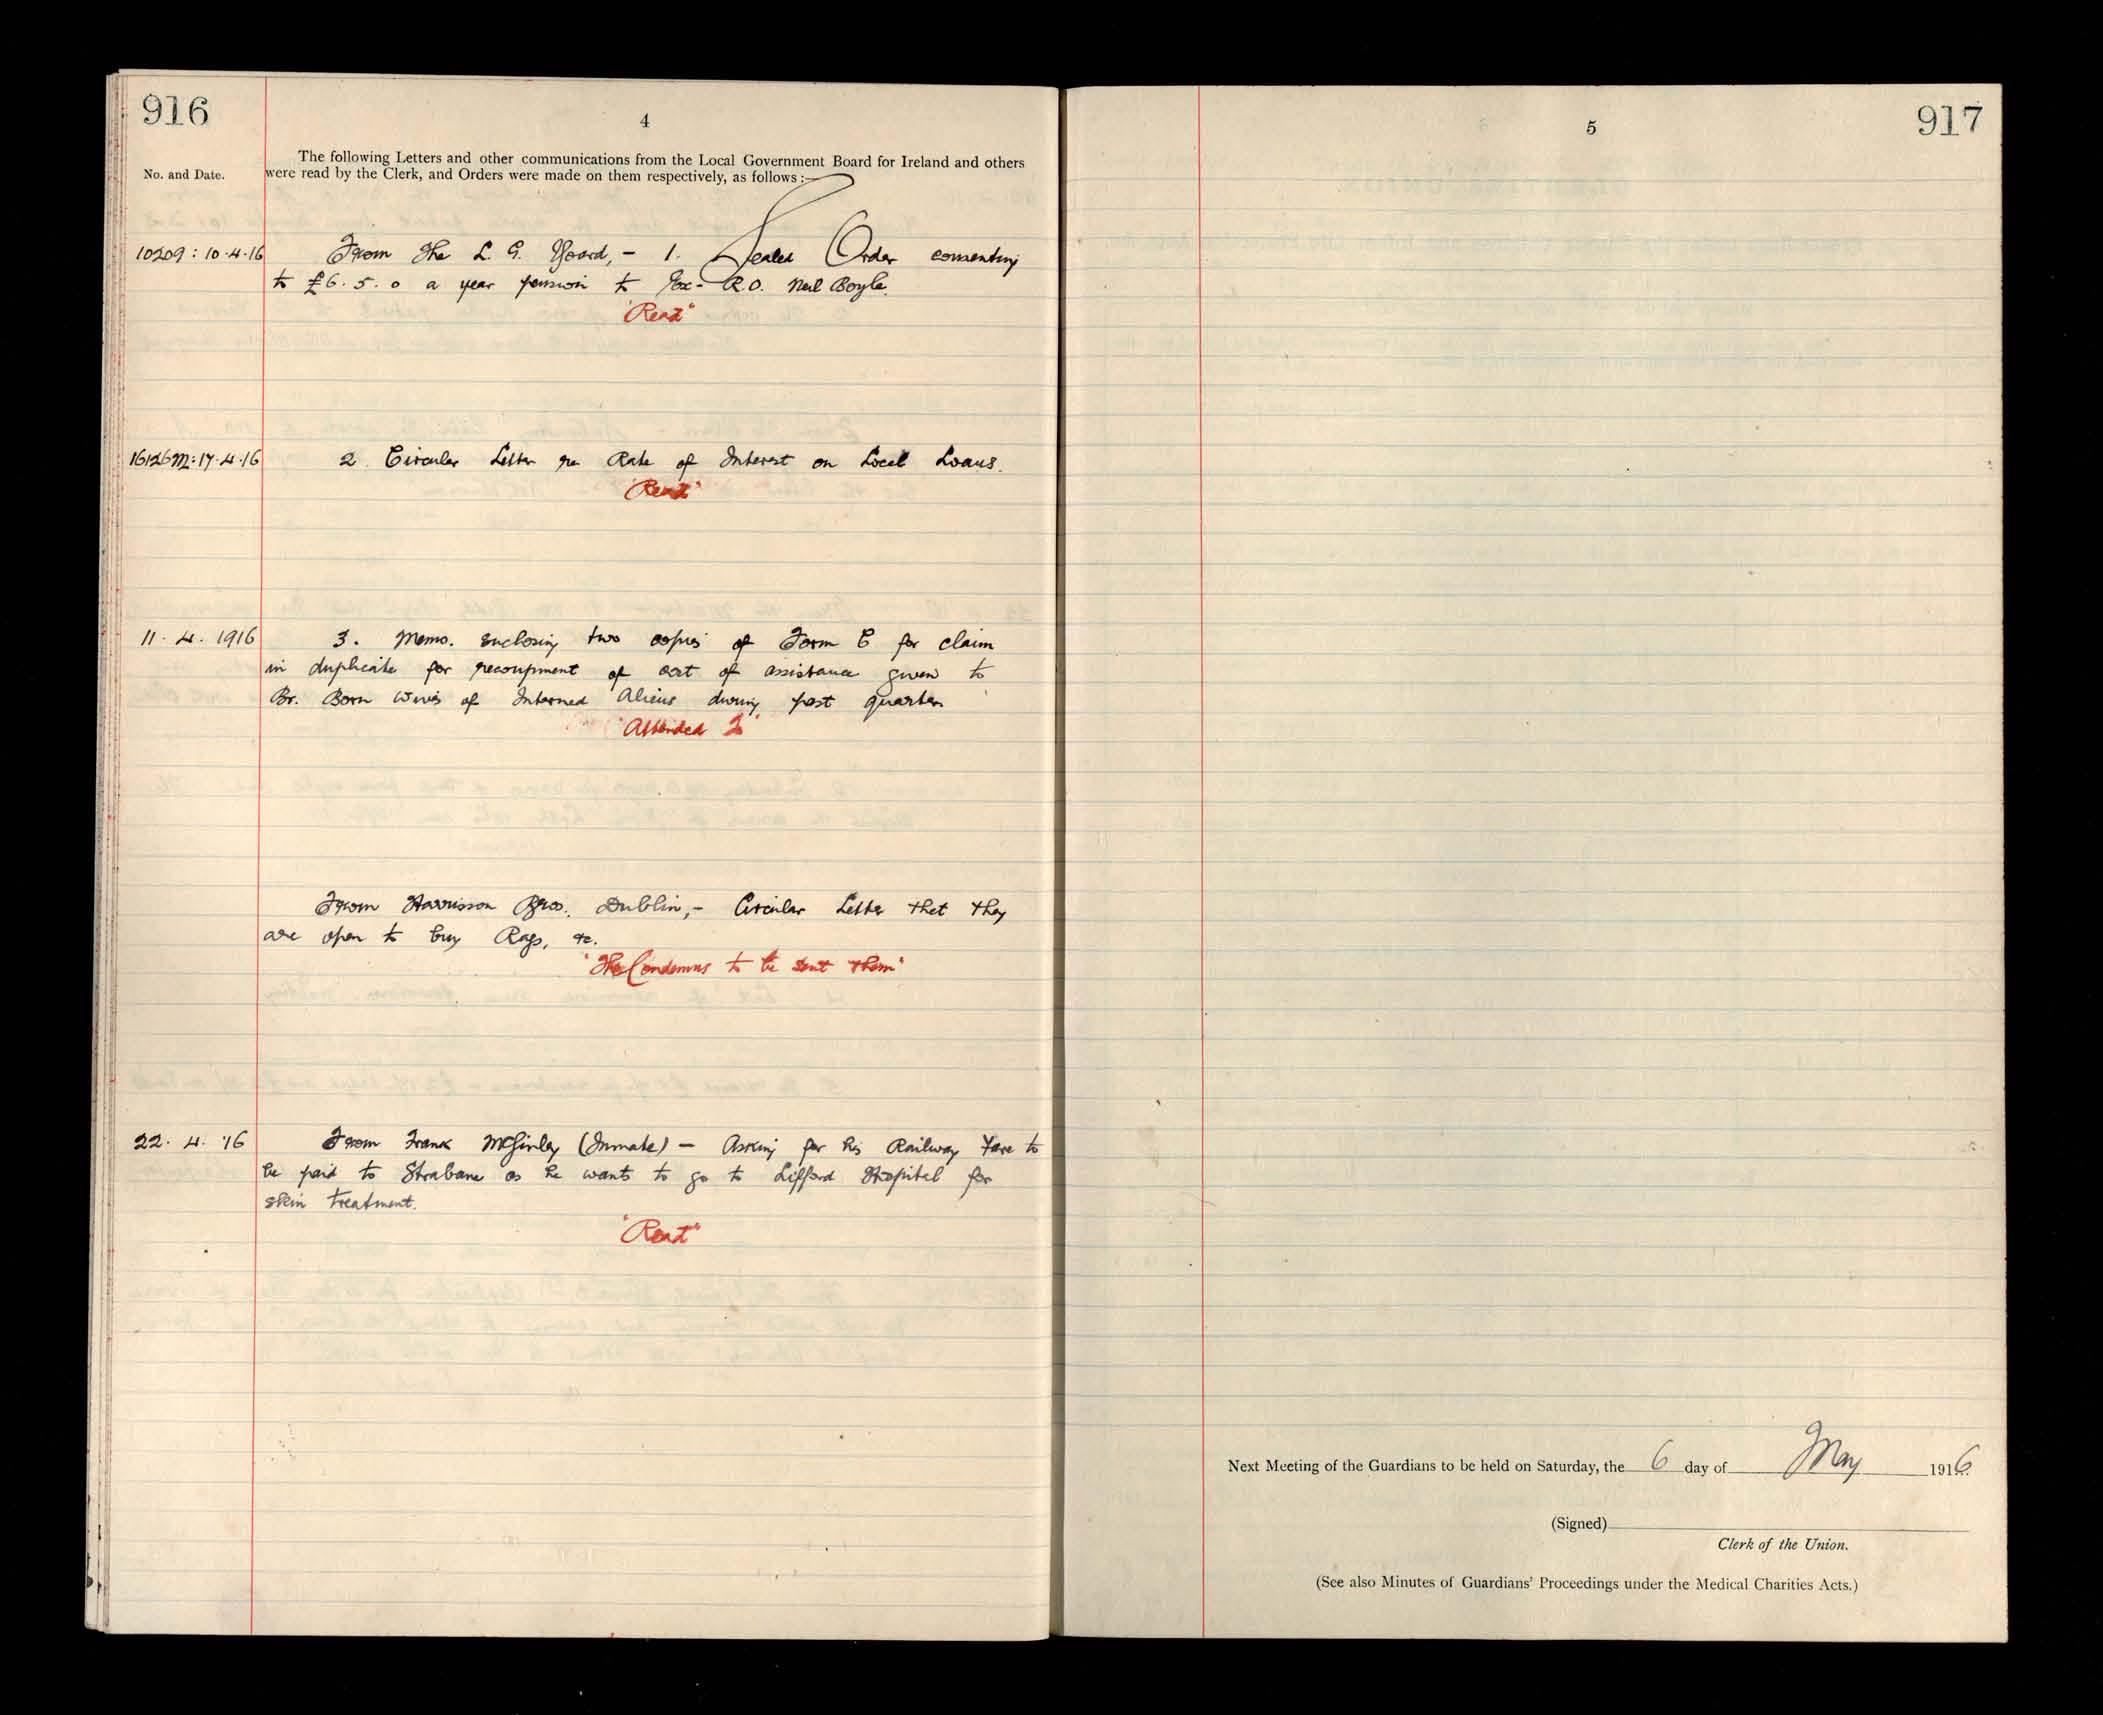 916
4
No. and Date.
The following Letters and other communications from the Local Government Board for Ireland and others
were read by the Clerk, and Orders were made on them respectively, as follows:—
10209 : 10.4.16
From The L. G. Board, - 1. Sealed Order consenting
to £6. 5. 0 a year pension to Ex-R.O. Neil Boyle.
"Read"
16126M: 17.4.16
2. Circular Letter re Rate of Interest on Local Loans.
"Read"
11. 4. 1916
3. Memo. enclosing two copies of Form C for claim
in duplicate for recoupment of cost of assistance given to
Br. Born Wives of Interned Aliens during past quarter
"Attended To"
From Harrisson Bros. Dublin, - Circular Letter that they
are open to buy Rags, &c.
"The Condemns to be sent them"
22. 4. '16
From Frank McGinley (Inmate) - Asking for his Railway Fare to
be paid to Strabane as he wants to go to Lifford Hospital for
skin treatment.
"Read"
917
5
Next Meeting of the Guardians to be held on Saturday, the 6 day of May 1916.
(Signed)
Clerk of the Union.
(See also Minutes of Guardians' Proceedings under the Medical Charities Acts.)